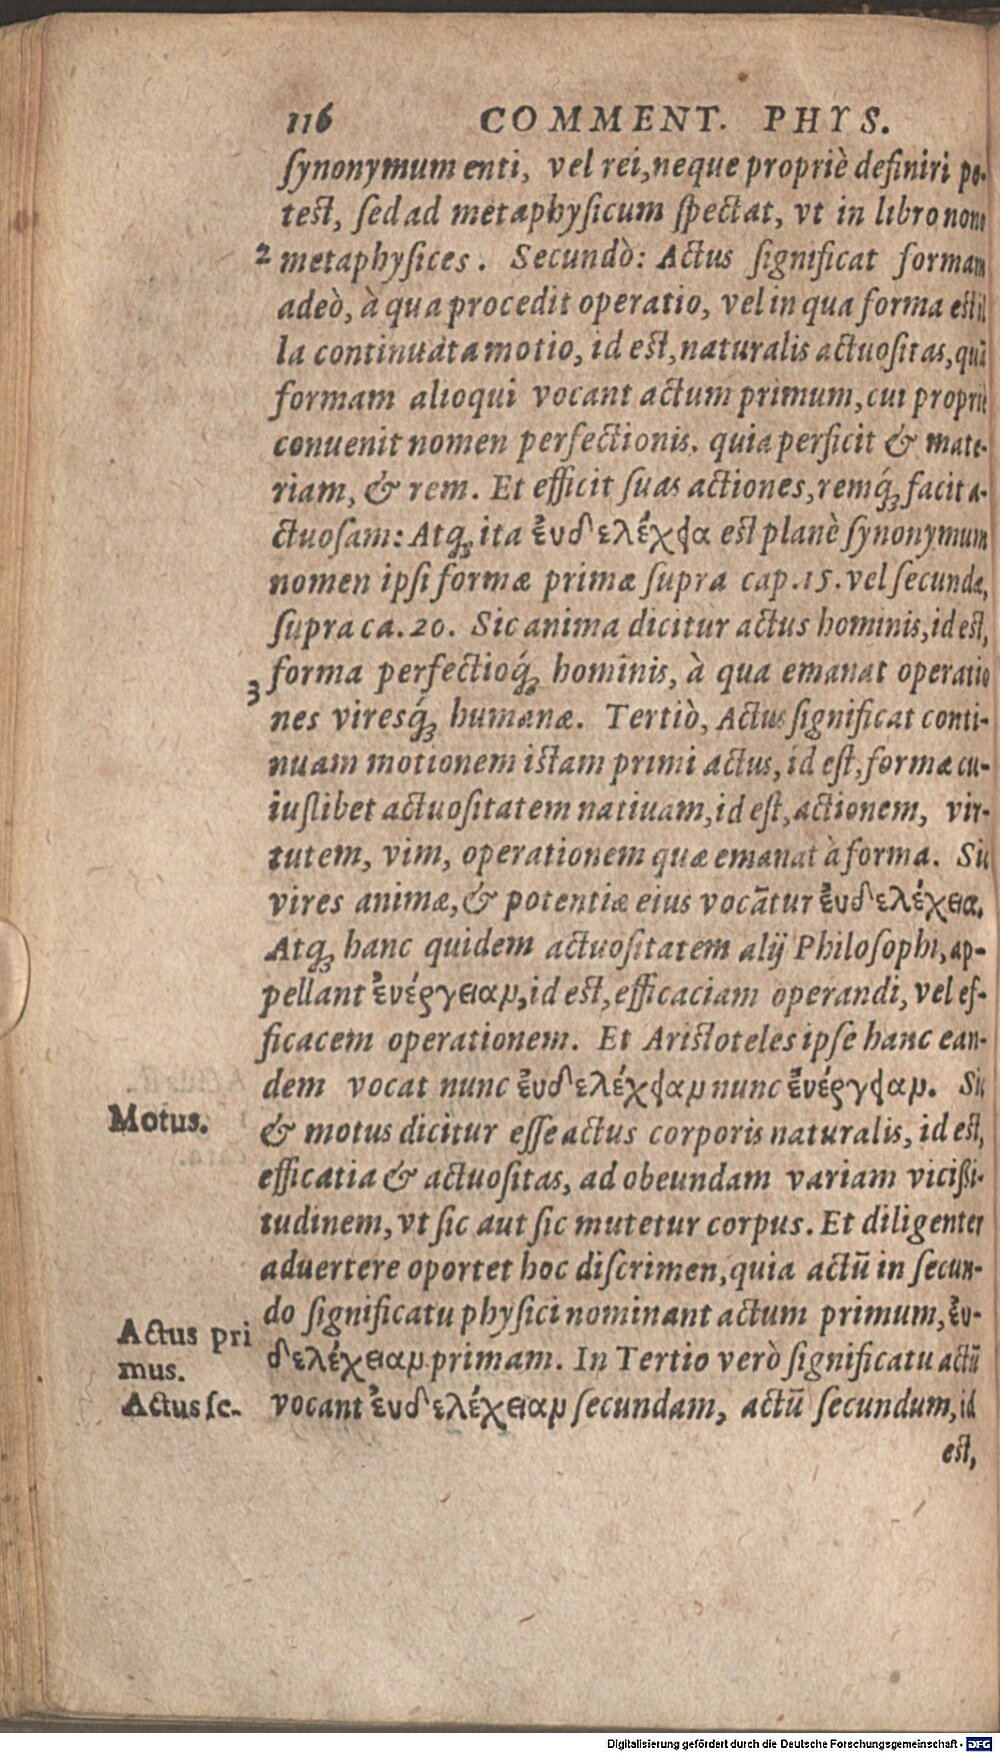 116 COMMENT. PHYS.
ſynonymum enti, vel rei, neque propriè definiri po-
test, ſed ad metaphyſicum ſpectat, vt in libro nono
2 metaphyſices. Secundò: Actus ſignificat formam
adeò, à qua procedit operatio, vel in qua forma est il
la continuata motio, id est, naturalis actuoſitas, quã
formam alioqui vocant actum primum, cui propriè
conuenit nomen perfectionis, quia perficit & mate-
riam, & rem. Et efficit ſuas actiones, remq́; facit a-
ctuoſam: Atq; ita ἐνδελέχεια est planè ſynonymum
nomen ipſi formæ primæ ſupra cap. 15. vel ſecundæ,
ſupra ca. 20. Sic anima dicitur actus hominis, id est,
forma perfectioq́; hominis, à qua emanat operatio
3 nes viresq́; humanæ. Tertiò, Actus ſignificat conti-
nuam motionem istam primi actus, id eſt, formæ cu-
iuſlibet actuoſitatem natiuam, id eſt, actionem, vir-
tutem, vim, operationem quæ emanat à forma. Sic
vires animæ, & potentiæ eius vocãtur ἐνδελέχεια.
Atq; hanc quidem actuoſitatem alij Philoſophi, ap-
pellant ἐνέργειαν, id est, efficaciam operandi, vel ef-
ficacem operationem. Et Aristoteles ipſe hanc ean-
dem vocat nunc ἐνδελέχειαν nunc ἐνέργειαν. Sic
Motus.
& motus dicitur eſſe actus corporis naturalis, id est,
efficatia & actuoſitas, ad obeundam variam vicißi-
tudinem, vt ſic aut ſic mutetur corpus. Et diligenter
aduertere oportet hoc diſcrimen, quia actũ in ſecun-
do ſignificatu phyſici nominant actum primum, ἐν-
Actus pri
mus.
δελέχειαν primam. In Tertio verò ſignificatu actũ
Actus ſe-
vocant ἐνδελέχειαν ſecundam, actũ ſecundum, id
est,
Digitalisierung gefördert durch die Deutsche Forschungsgemeinschaft - DFG